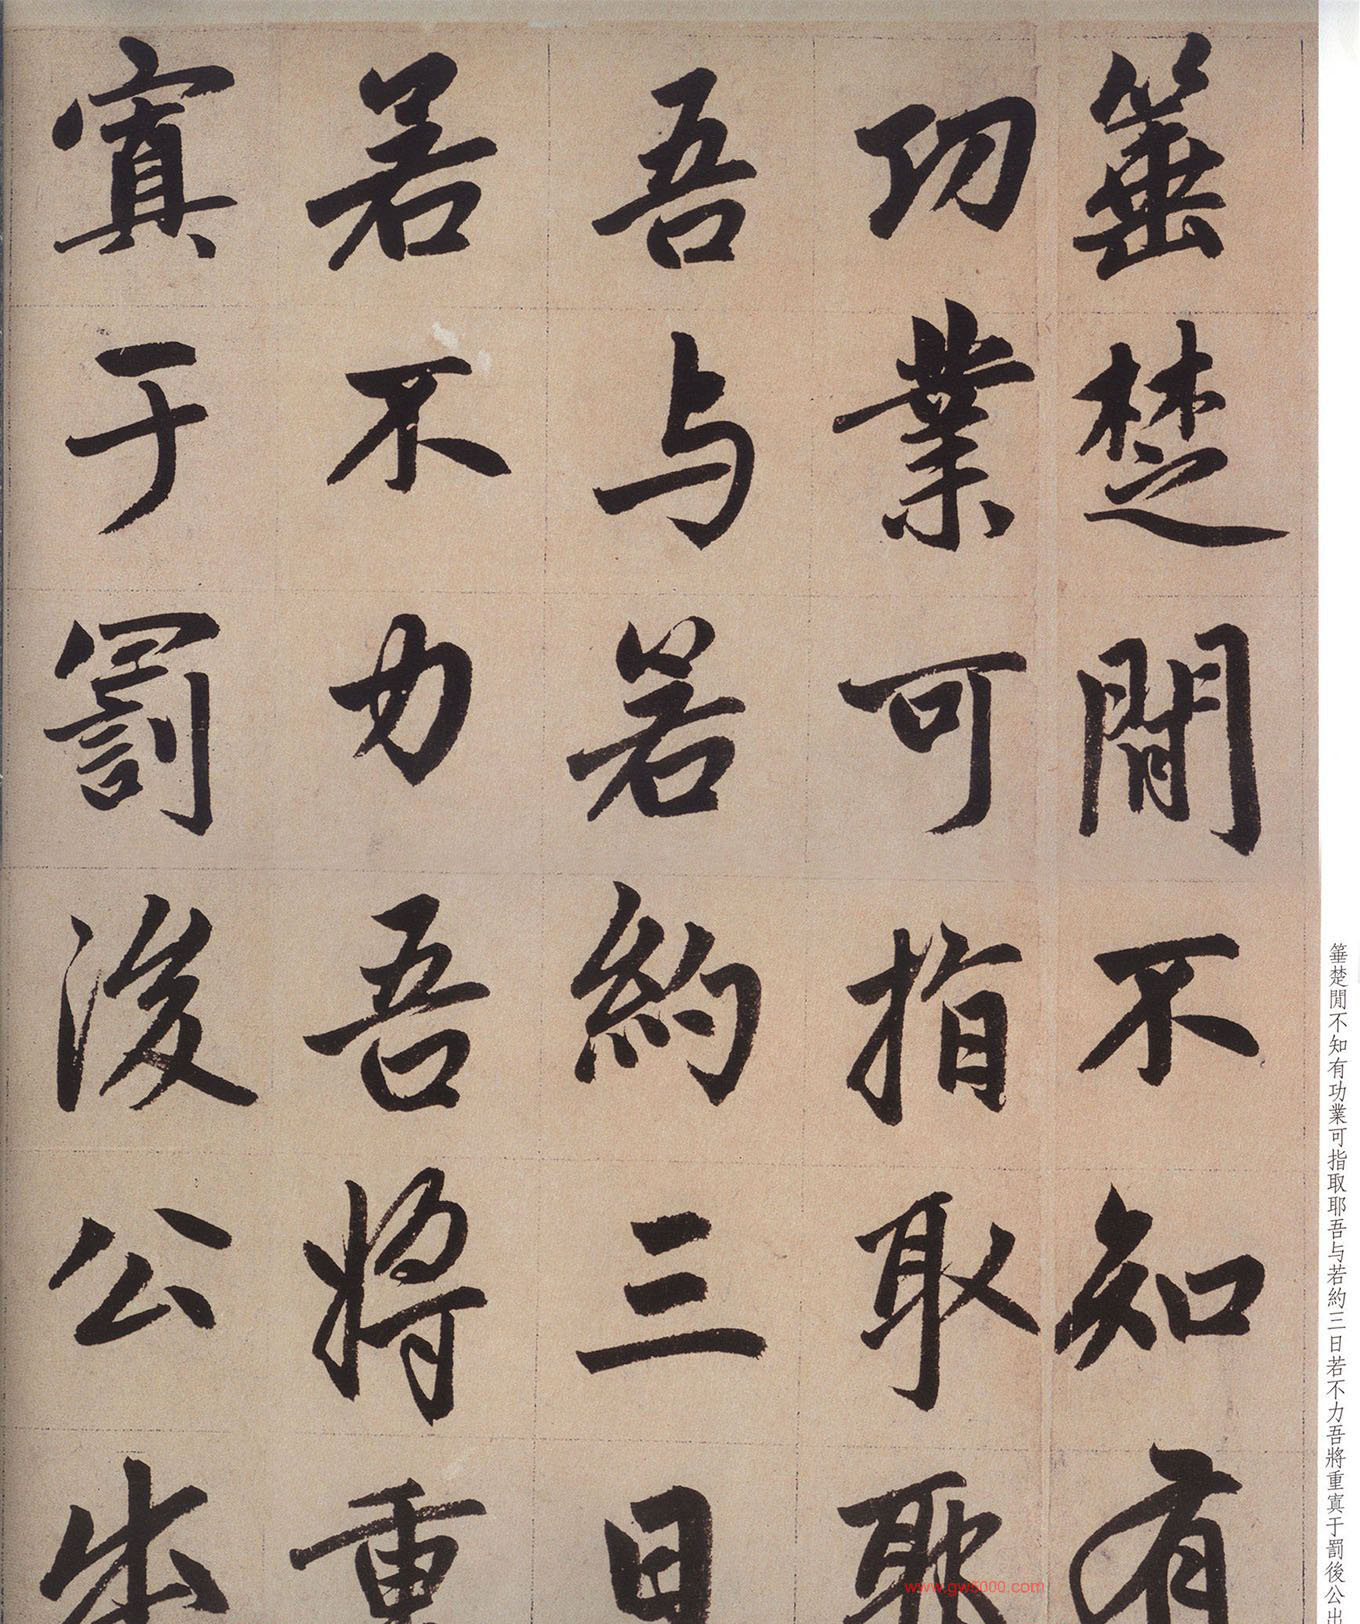 箠楚間不知有
功業可指取耶
吾与若約三日
若不力吾將重
寘于罰後公出
箠楚閒不知有功業可指取耶吾与若約三日若不力吾將重寘于罰後公出
www.gw8000.com